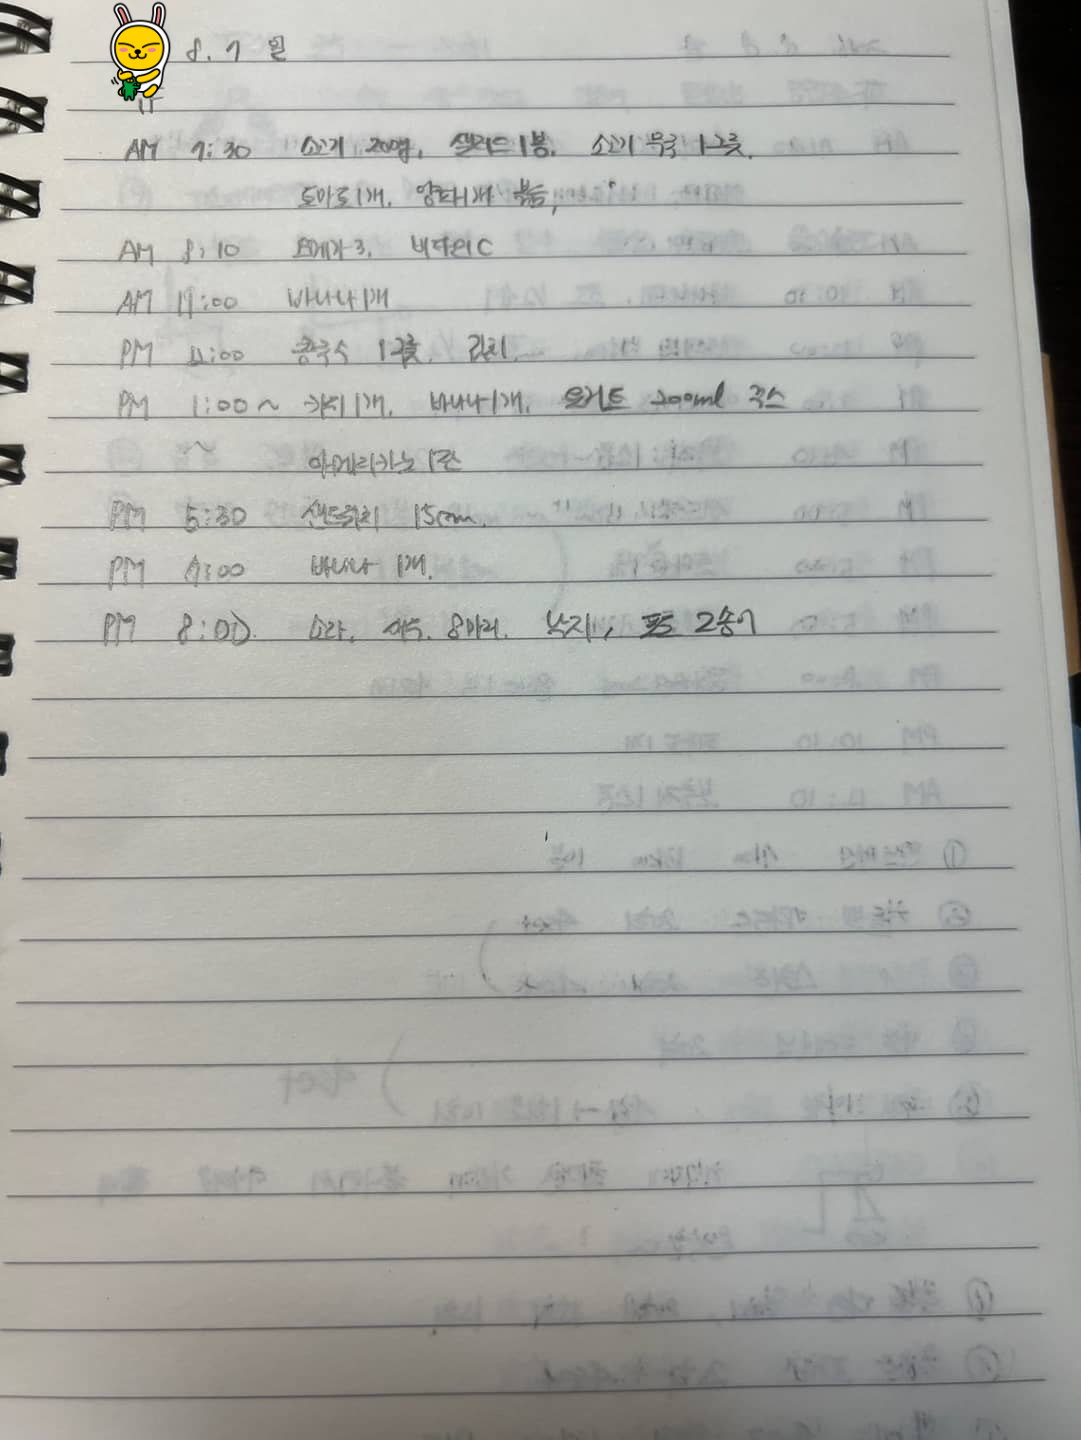 8. 7 월
AM 7:30 소고기 200g, 샐러드 1봉, 소고기 무국 1그릇,
토마토1개, 양파1개 볶음,
AM 8:10 오메가3, 비타민C
AM :00 바나나1개
PM 12:00 콩국수 1그릇, 김치,
PM 1:00~ 1개, 바나나1개, 요거트 200ml 쥬스
~ 아메리카노 1잔
PM 5:30 샌드위치 15cm,
PM 7:00 바나나 1개,
PM 8:00 소라, 새우 8마리, 낙지, 포도 2송이